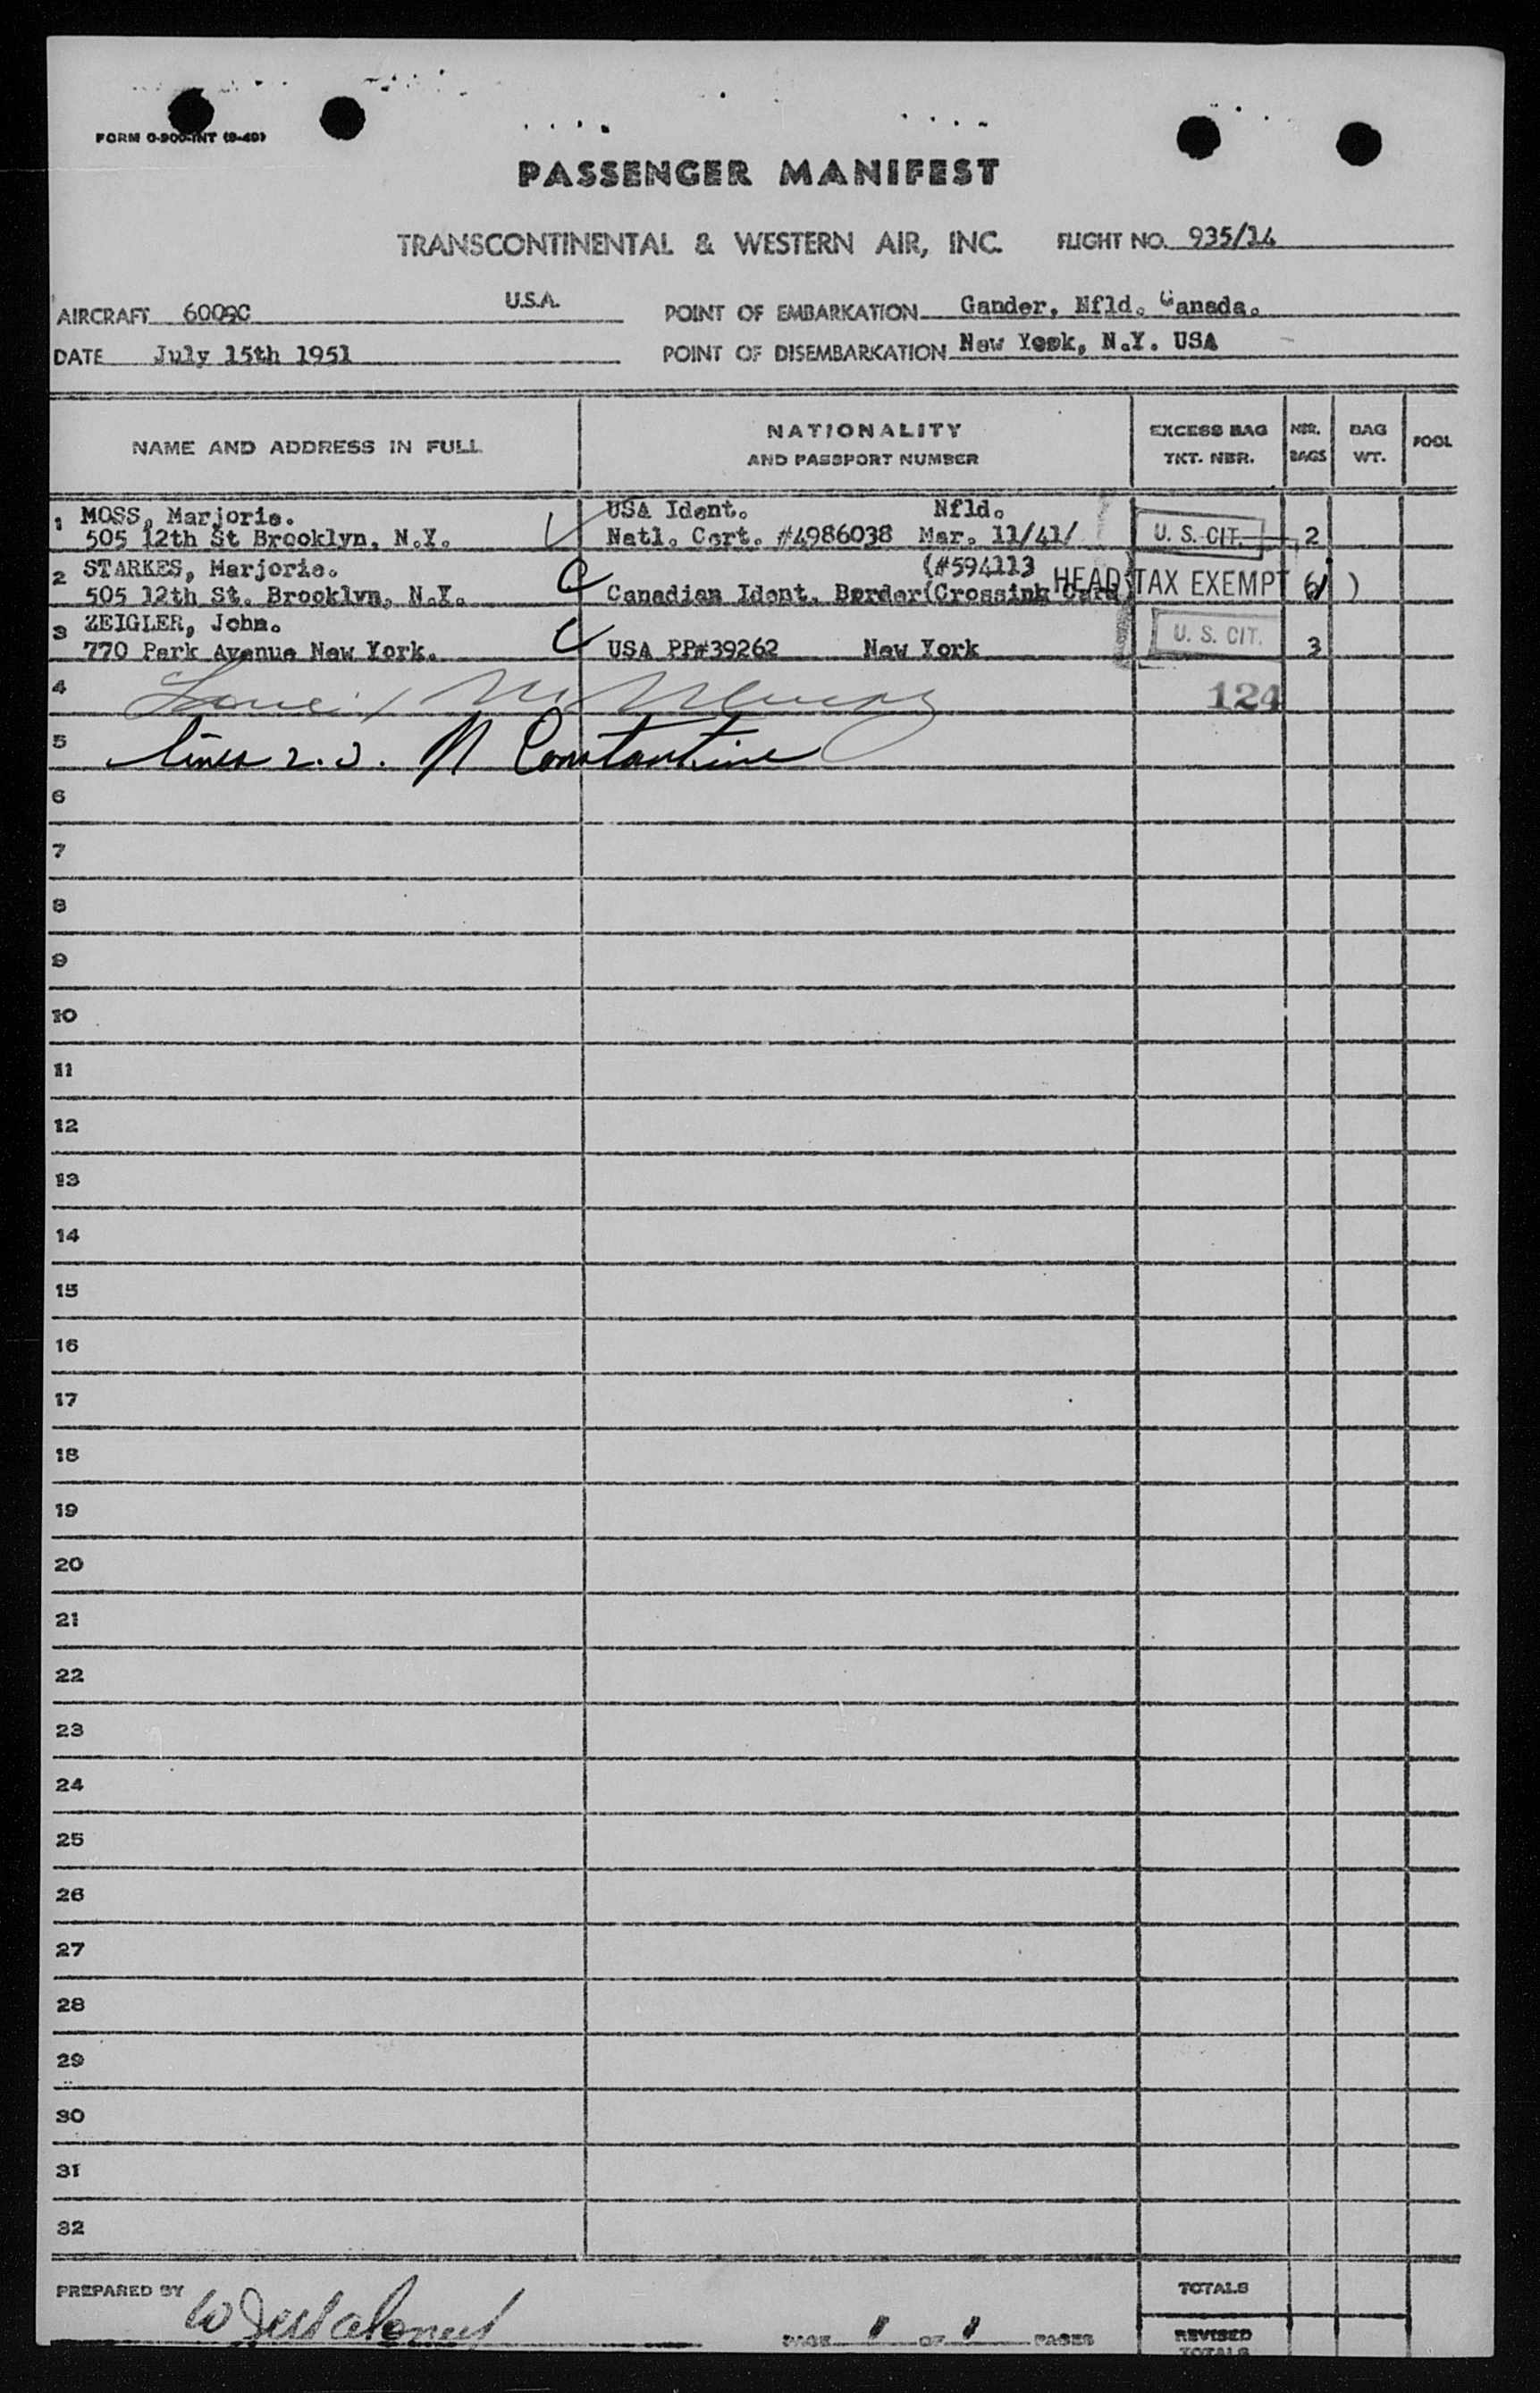 FORM O-900-INT (9-49)
PASSENGER MANIFEST
TRANSCONTINENTAL & WESTERN AIR, INC. FLIGHT NO. 935/14
AIRCRAFT 6009C U.S.A. POINT OF EMBARKATION Gander, Nfld. Canada.
DATE July 15th 1951 POINT OF DISEMBARKATION New York, N.Y. USA
NAME AND ADDRESS IN FULL NATIONALITY AND PASSPORT NUMBER EXCESS BAG TKT. NBR. NBR. BAGS BAG WT. POOL
1 MOSS, Marjorie. USA Ident. Nfld.
505 12th St Brooklyn, N.Y. Natl. Cert. #4986038 Mar. 11/41/ U. S. CIT. 2
2 STARKES, Marjorie. (#594113
505 12th St. Brooklyn, N.Y. Canadian Ident. Border(Crossink Card) HEAD TAX EXEMPT ( )
3 ZEIGLER, John. U. S. CIT.
770 Park Avenue New York. USA PP#39262 New York 3
4 124
5 lines 2.3. N Constantine
6
7
8
9
10
11
12
13
14
15
16
17
18
19
20
21
22
23
24
25
26
27
28
29
30
31
32
PREPARED BY TOTALS
PAGE 1 OF 1 PAGES REVISED TOTALS